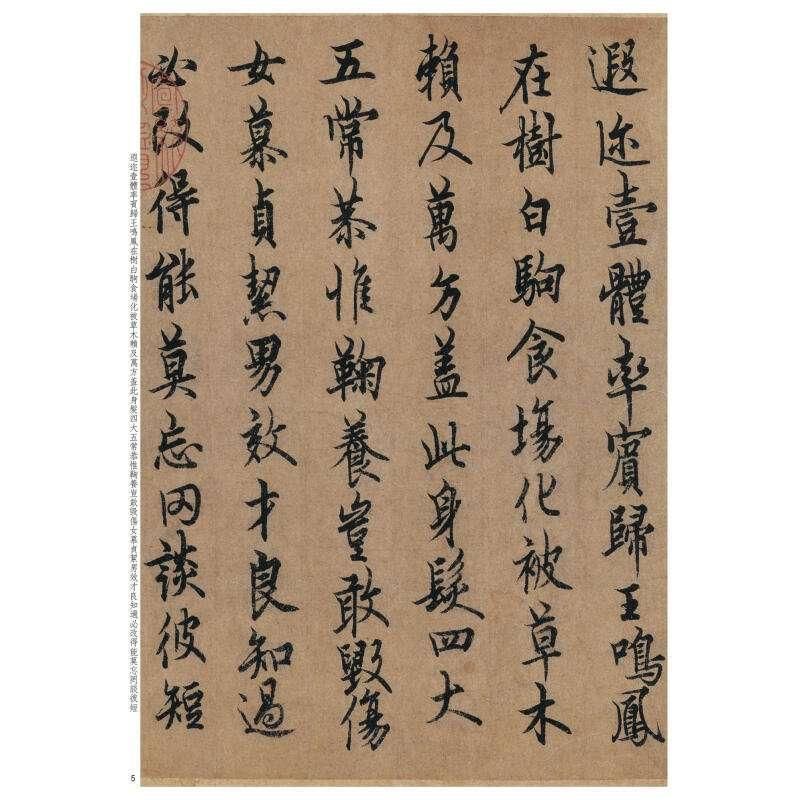 遐迩壹體率賓歸王鳴鳳
在樹白駒食場化被草木
賴及萬方蓋此身髮四大
五常恭惟鞠養豈敢毀傷
女慕貞絜男效才良知過
必改得能莫忘罔談彼短
遐迩壹體率賓歸王鳴鳳在樹白駒食場化被草木賴及萬方蓋此身髮四大五常恭惟鞠養豈敢毀傷女慕貞絜男效才良知過必改得能莫忘罔談彼短
5